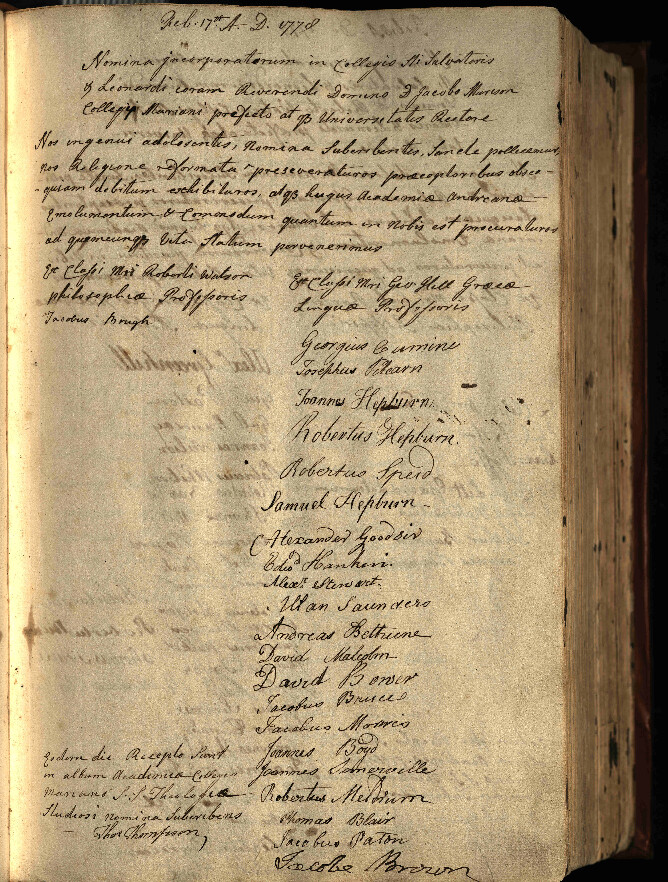 Feb. 17th A. D. 1778
Nomina incorporatorum in Collegio Sti Salvatoris
& Leonardi coram Reverendi Domino D Jacobo Morison
Collegii Mariani prefecto atqz Universitatis Rectore
Nos ingenui adolescentes, nomina Subscribentes, Sancte pollicemur
nos Religione reformata perseveraturos præceptoribus obse-
-quium debitum exhibituros, atqz hujus Academiæ Andreanæ
Emolumentum & Comodum quantum in nobis est procuraturos
ad quemcunqz Vitæ Statum pervenerimus
Ex Classi Mri Roberti Watson
philosophiæ Professoris
Jacobus Brugh
Ex Classi Mri Geo Hill Græcæ
Linguæ Professoris
Georgius Cumine
Josephus
Joannes Hepburn
Robertus Hepburn.
Robertus Speid
Samuel Hepburn
Alexander Goodsir
Edid
Alexr Stewart.
Allan Saunders
Andreas Bethune
David Malcolm
David Bower
Jacobus Bruce
Jacobus Morris
Joannes Boyd
Joannes Somerville
Robertus Meldrum
Thomas Blair
Jacobus Paton
Jacobe Brown
Eodem die Recepti Sunt
in album Academiæ
Mariani S. S. Theologiæ
Studiosi nomina Subscribens
Thos Thompson